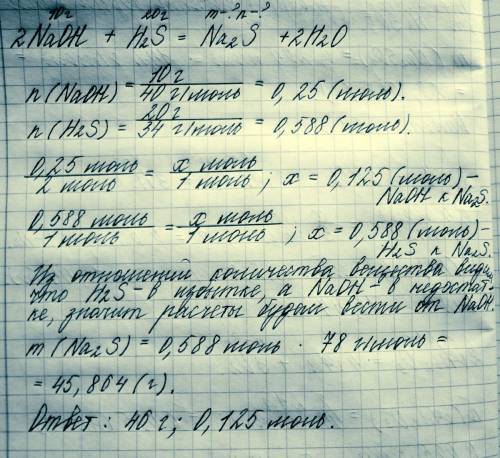 10г 20г m-? n-?
2NaOH + H2S = Na2S + 2H2O
n(NaOH) = 10г / 40 г/моль = 0,25 (моль).
n(H2S) = 20г / 34 г/моль = 0,588 (моль).
0,25 моль / 2 моль = x моль / 1 моль ; x = 0,125 (моль) –
NaOH к Na2S.
0,588 моль / 1 моль = x моль / 1 моль ; x = 0,588 (моль) –
H2S к Na2S.
Из отношений количества вещества видно,
что H2S – в избытке, а NaOH – в недостат-
ке, значит расчеты будем вести от NaOH.
m(Na2S) = 0,588 моль · 78 г/моль =
= 45,864 (г).
Ответ: 46 г; 0,125 моль.